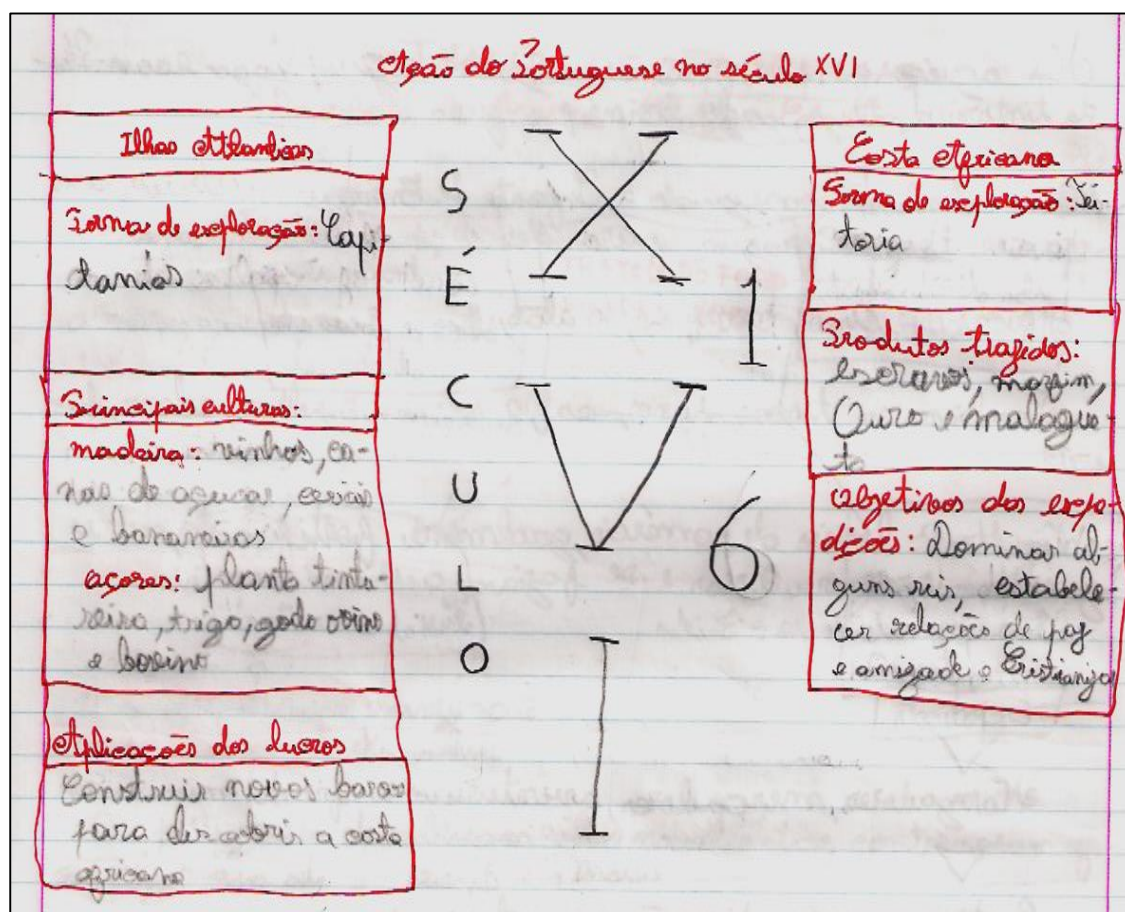 Ação do Portuguese no século XVI
Ilhas Atlanticas
Forma de exploração: Capi-
tanias
Principais culturas:
madeira: vinhos, ca-
nas de açucar, ceriais
e bananeiras
açores: planta tinta-
reira, trigo, gado ovino
e bovino
Aplicações dos lucros
Construir novos barcos
para descobrir a costa
africana
SÉCULO
XVI
16
Costa Africana
Forma de exploração: Fei-
toria
Produtos trazidos:
escravos, marfim,
Ouro e malague-
ta
Objetivos dos expe-
dições: Dominar al-
guns reis, estabele-
cer relações de paz
e amizade e Cristianiza